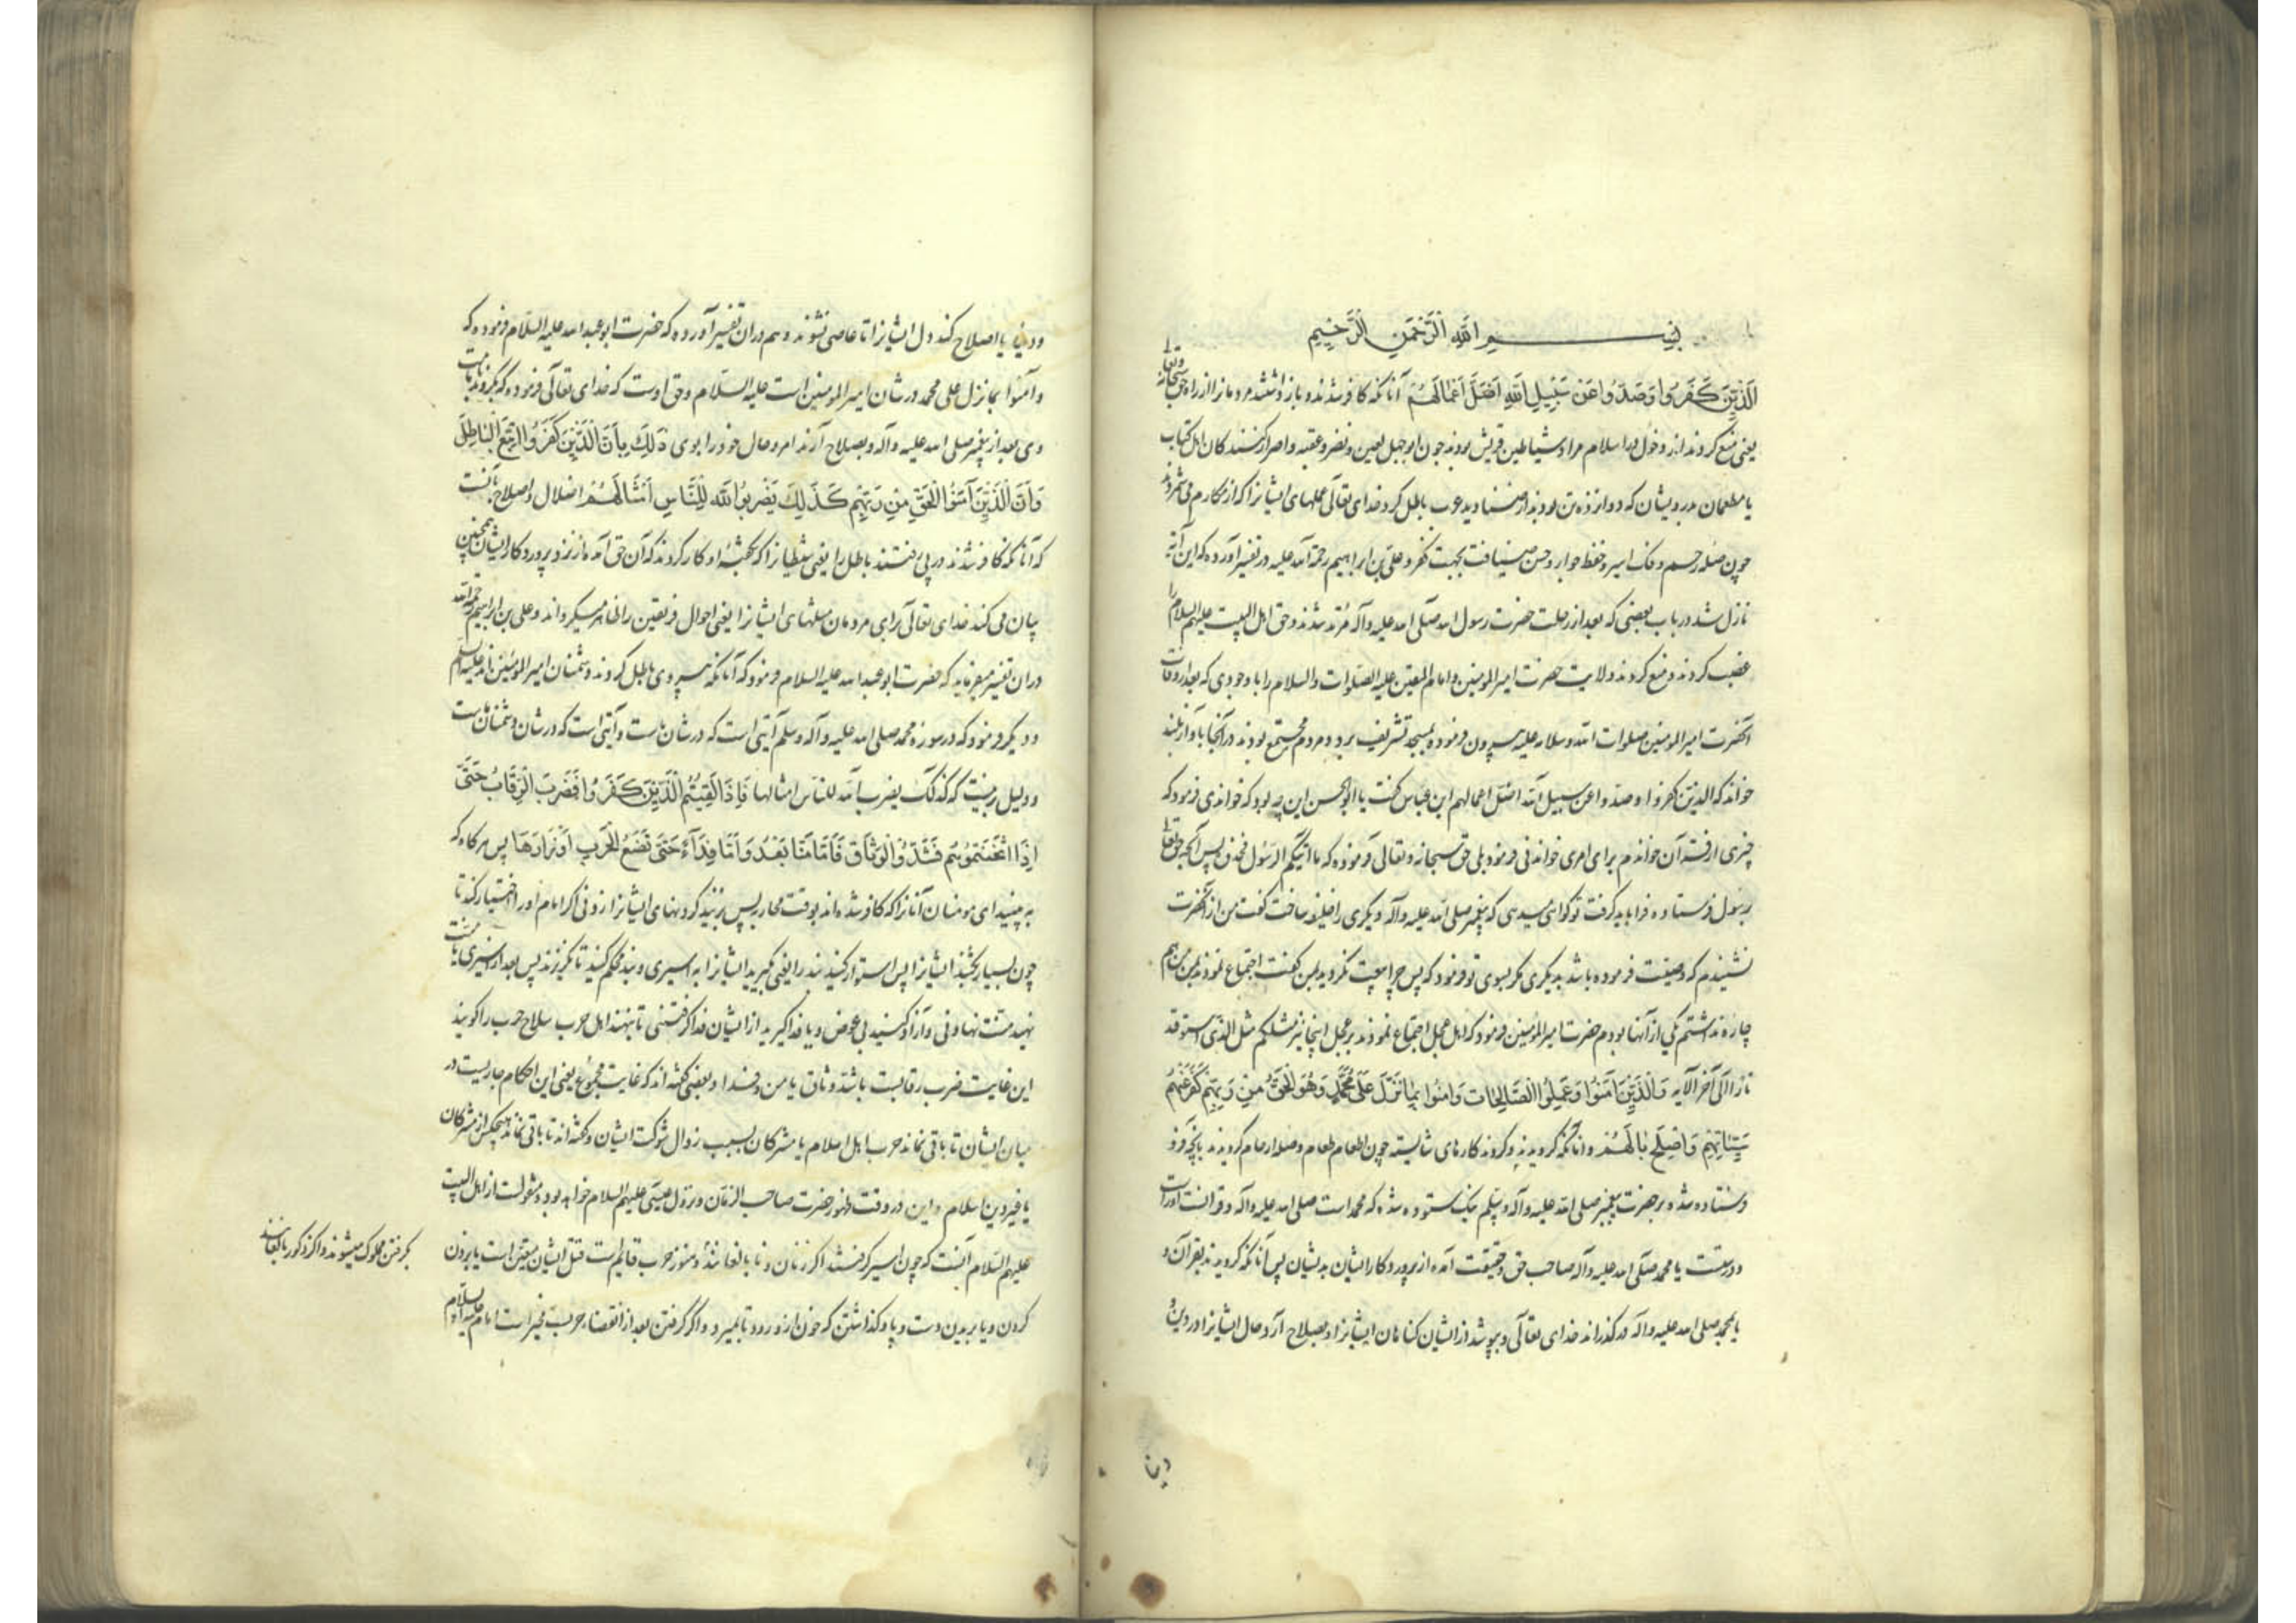 بسم الله الرحمن الرحیم
الَّذِينَ كَفَرُوا وَصَدُّوا عَن سَبِيلِ اللَّهِ أَضَلَّ أَعْمَالَهُمْ آنانکه کافر شدند و باز داشتند مردمانرا از راه حق سبحانه و تعالی
یعنی منع کردند از دخول در اسلام مراد شیاطین قریش بودند چون ابو جهل لعین و نضر و عقبه و اصرار کنندکان اهل کتاب
یا مطعمان بدر ویشان که دوازده تن بودند از صنادید عرب باطل کرد خدای تعالی عملهای ایشانرا که از مکارم می شمردند
چون صله رحم و فک اسیر و حفظ جوار و حسن ضیافت بجهت کفر و علی بن ابراهیم رحمة الله علیه در تفسیر آورده که این آیه
نازل شد در باب بعضی که بعد از رحلت حضرت رسول الله صلی الله علیه و آله مرتد شدند و حق اهل البیت علیهم السلام را
غصب کردند و منع کردند ولایت حضرت امیر المومنین و امام المتقین علیه الصلوات والسلام را با وجودی که بعد از وفات
آنحضرت امیر المومنین صلوات الله و سلامه علیه بیرون فرموده بمسجد تشریف برد و مردم مجتمع بودند در آنجا با آواز بلند
خواند که الذین کفروا و صدوا عن سبیل الله اضل اعمالهم ابن عباس گفت یا ابو الحسن این چه بود که خواندی فرمود که
چیزی از قرآن خواندم برای امری خواندی فرمود بلی حق سبحانه و تعالی فرموده که ما اتیکم الرسول فخذوه پس آنچه حق تعالی
برسول فرستاده فرا باید گرفت تو کواهی میدهی که پیغمبر صلی الله علیه و آله دیگری را خلیفه ساخت گفت من از آنحضرت
نشنیدم که وصیت فرموده باشد بدیگری مگر بسوی تو فرمود که پس چرا بیعت نکردید بمن گفت اجتماع نمودند من هم
چاره نداشتم یکی از آنها بودم حضرت امیر المومنین فرمود که اهل عجل اجتماع نمودند بر عجل اینجا نیز مثلکم مثل الذی استوقد
نارا الی آخر الآیه وَالَّذِينَ آمَنُوا وَعَمِلُوا الصَّالِحَاتِ وَآمَنُوا بِمَا نُزِّلَ عَلَى مُحَمَّدٍ وَهُوَ الْحَقُّ مِن رَّبِّهِمْ كَفَّرَ عَنْهُمْ
سَيِّئَاتِهِمْ وَأَصْلَحَ بَالَهُمْ و آنانکه کرویدند و کردند کارهای شایسته چون اطعام طعام و صله ارحام کرویدند بانچه فرو
فرستاده شد بر حضرت پیغمبر صلی الله علیه و آله و سلم نیک ستوده شده که محمد است صلی الله علیه و آله و قرانست او راست
و درست یا محمد صلی الله علیه و آله صاحب حق و حقیقت آمده از پرورد کار ایشان بدیشان پس آنانکه کرویدند بقرآن و
یا بمحمد صلی الله علیه و اله در کذراند خدای تعالی و بپوشد از ایشان کناهان ایشانرا و بصلاح آرد حال ایشانرا در دین و
دنیا
و دنیا یا اصلاح کند دل ایشانرا تا عاصی نشوند و هم در ان تفسیر آورده که حضرت ابو عبد الله علیه السلام فرموده که
و آمنوا بما نزل علی محمد در شان امیر المومنین است علیه السلام و حق اوست که خدای تعالی فرموده که
وی بعد از پیغمبر صلی الله علیه و آله و بصلاح آرند امر و حال خود را بوی ذَلِكَ بِأَنَّ الَّذِينَ كَفَرُوا اتَّبَعُوا الْبَاطِلَ
وَأَنَّ الَّذِينَ آمَنُوا اتَّبَعُوا الْحَقَّ مِن رَّبِّهِمْ كَذَلِكَ يَضْرِبُ اللَّهُ لِلنَّاسِ أَمْثَالَهُمْ اضلال و اصلاح بآنست
که آنانکه کافر شدند در پی رفتند باطل را یعنی شیطانرا که بگفته او کار کردند که آن حق آمده از نزد پروردکار ایشان همچنین
بیان می کند خدای تعالی برای مردمان مثلهای ایشانرا یعنی احوال فریقین را ظاهر میگرداند و علی بن ابراهیم رحمه الله
در ان تفسیر میفرماید که حضرت ابو عبد الله علیه السلام فرمود که آنانکه پیروی باطل کردند دشمنان امیر المومنین اند علیه السلام
و دیگر فرمود که در سوره محمد صلی الله علیه و آله و سلم آیتی است که در شان ماست و آیتی است که در شان دشمنان ماست
و دلیل برینست که کذلک یضرب الله للناس امثالها فَإِذَا لَقِيتُمُ الَّذِينَ كَفَرُوا فَضَرْبَ الرِّقَابِ حَتَّى
إِذَا أَثْخَنتُمُوهُمْ فَشُدُّوا الْوَثَاقَ فَإِمَّا مَنًّا بَعْدُ وَإِمَّا فِدَاءً حَتَّى تَضَعَ الْحَرْبُ أَوْزَارَهَا پس هرکاه که
به بینید ای مومنان آنانرا که کافر شده اند بوقت محاربه پس بزنید کردنهای ایشانرا زدنی اکر امام او را اختیار کند تا
چون بسیار بکشید ایشانرا پس استوار کنید بند را یعنی بگیرید ایشانرا به اسیری و بند محکم کنید تا نگریزند پس بعد از اسیری یا منت
نهید منت نهادنی و آزاد کنید بی عوض و یا فدا گیرید از ایشان فدا گرفتنی تا بنهند اهل حرب سلاح حرب را گویند
این غایت ضرب رقابست باشد وثاق یا من و فدا و بعضی گفته اند که غایت مجموع یعنی این احکام جاریست در
میان ایشان تا باقی نماند حرب اهل اسلام با مشرکان بسبب زوال شوکت ایشان و گفته اند تا باقی نماند هیچکس از مشرکان
یا غیر دین اسلام و این در وقت ظهور حضرت صاحب الزمان و نزول عیسی علیهم السلام خواهد بود و منقولست از اهل البیت
علیهم السلام آنست که چون اسیر گرفتند اکر زنان و نا بالغا و هنوز حرب قایم است قتل ایشان متعین است یا بردن
کردن و یا بریدن دست و پا و گذاشتن که خون از و رود تا بمیرد و اگر گرفتن بعد از انقضاء حربست مخیر است امام علیه السلام
بگرفتن مملوک میشوند و اکر ذکور بالغاند